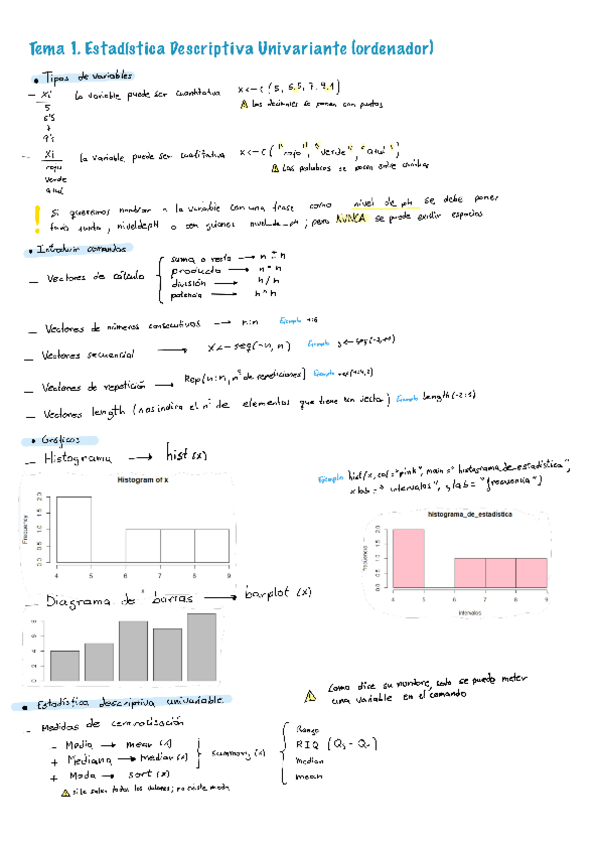 Tema 1. Estadística Descriptiva Univariante (ordenador)
• Tipos de variables
– Xi la variable puede ser cuantitativa x<-c(5, 6.5, 7, 9.1)
5
6'5
7
9'1
⚠ Los decimales se ponen con puntos
– Xi la variable puede ser cualitativa x<-c("rojo", "verde", "azul")
rojo
verde
azul
⚠ Las palabras se ponen entre comillas
! Si queremos nombrar a la variable con una frase como nivel de pH se debe poner
todo junto, niveldepH o con guiones nivel_de_pH; pero NUNCA se puede existir espacios
• Introducir comandos
– Vectores de cálculo
suma o resta → n ± n
producto → n * n
división → n / n
potencia → n ^ n
– Vectores de números consecutivos → n:n Ejemplo
– Vectores secuencial → x<-seq(-n, n) Ejemplo
– Vectores de repetición → Rep(n:n, nº de repeticiones) Ejemplo
– Vectores length (nos indica el nº de elementos que tiene un vector) Ejemplo length(-2:5)
• Gráficos
– Histograma → hist(x)
Ejemplo hist(x, col="pink", main="histograma_de_estadística",
xlab="intervalos", ylab="frecuencia")
Histogram of x
Frequency
0.0 0.5 1.0 1.5 2.0
4 5 6 7 8 9
x
histograma_de_estadística
frecuencia
0.0 0.5 1.0 1.5 2.0
4 5 6 7 8 9
intervalos
– Diagrama de barras → barplot(x)
0 2 4 6 8
• Estadística descriptiva univariable
⚠ Como dice su nombre, solo se puede meter
una variable en el comando
– Medidas de centralización
– Media → mean(x)
+ Mediana → median(x)
+ Moda → sort(x)
summary(x)
Rango
RIQ (Q3 - Q1)
median
mean
⚠ si le salen todos los valores; no existe moda